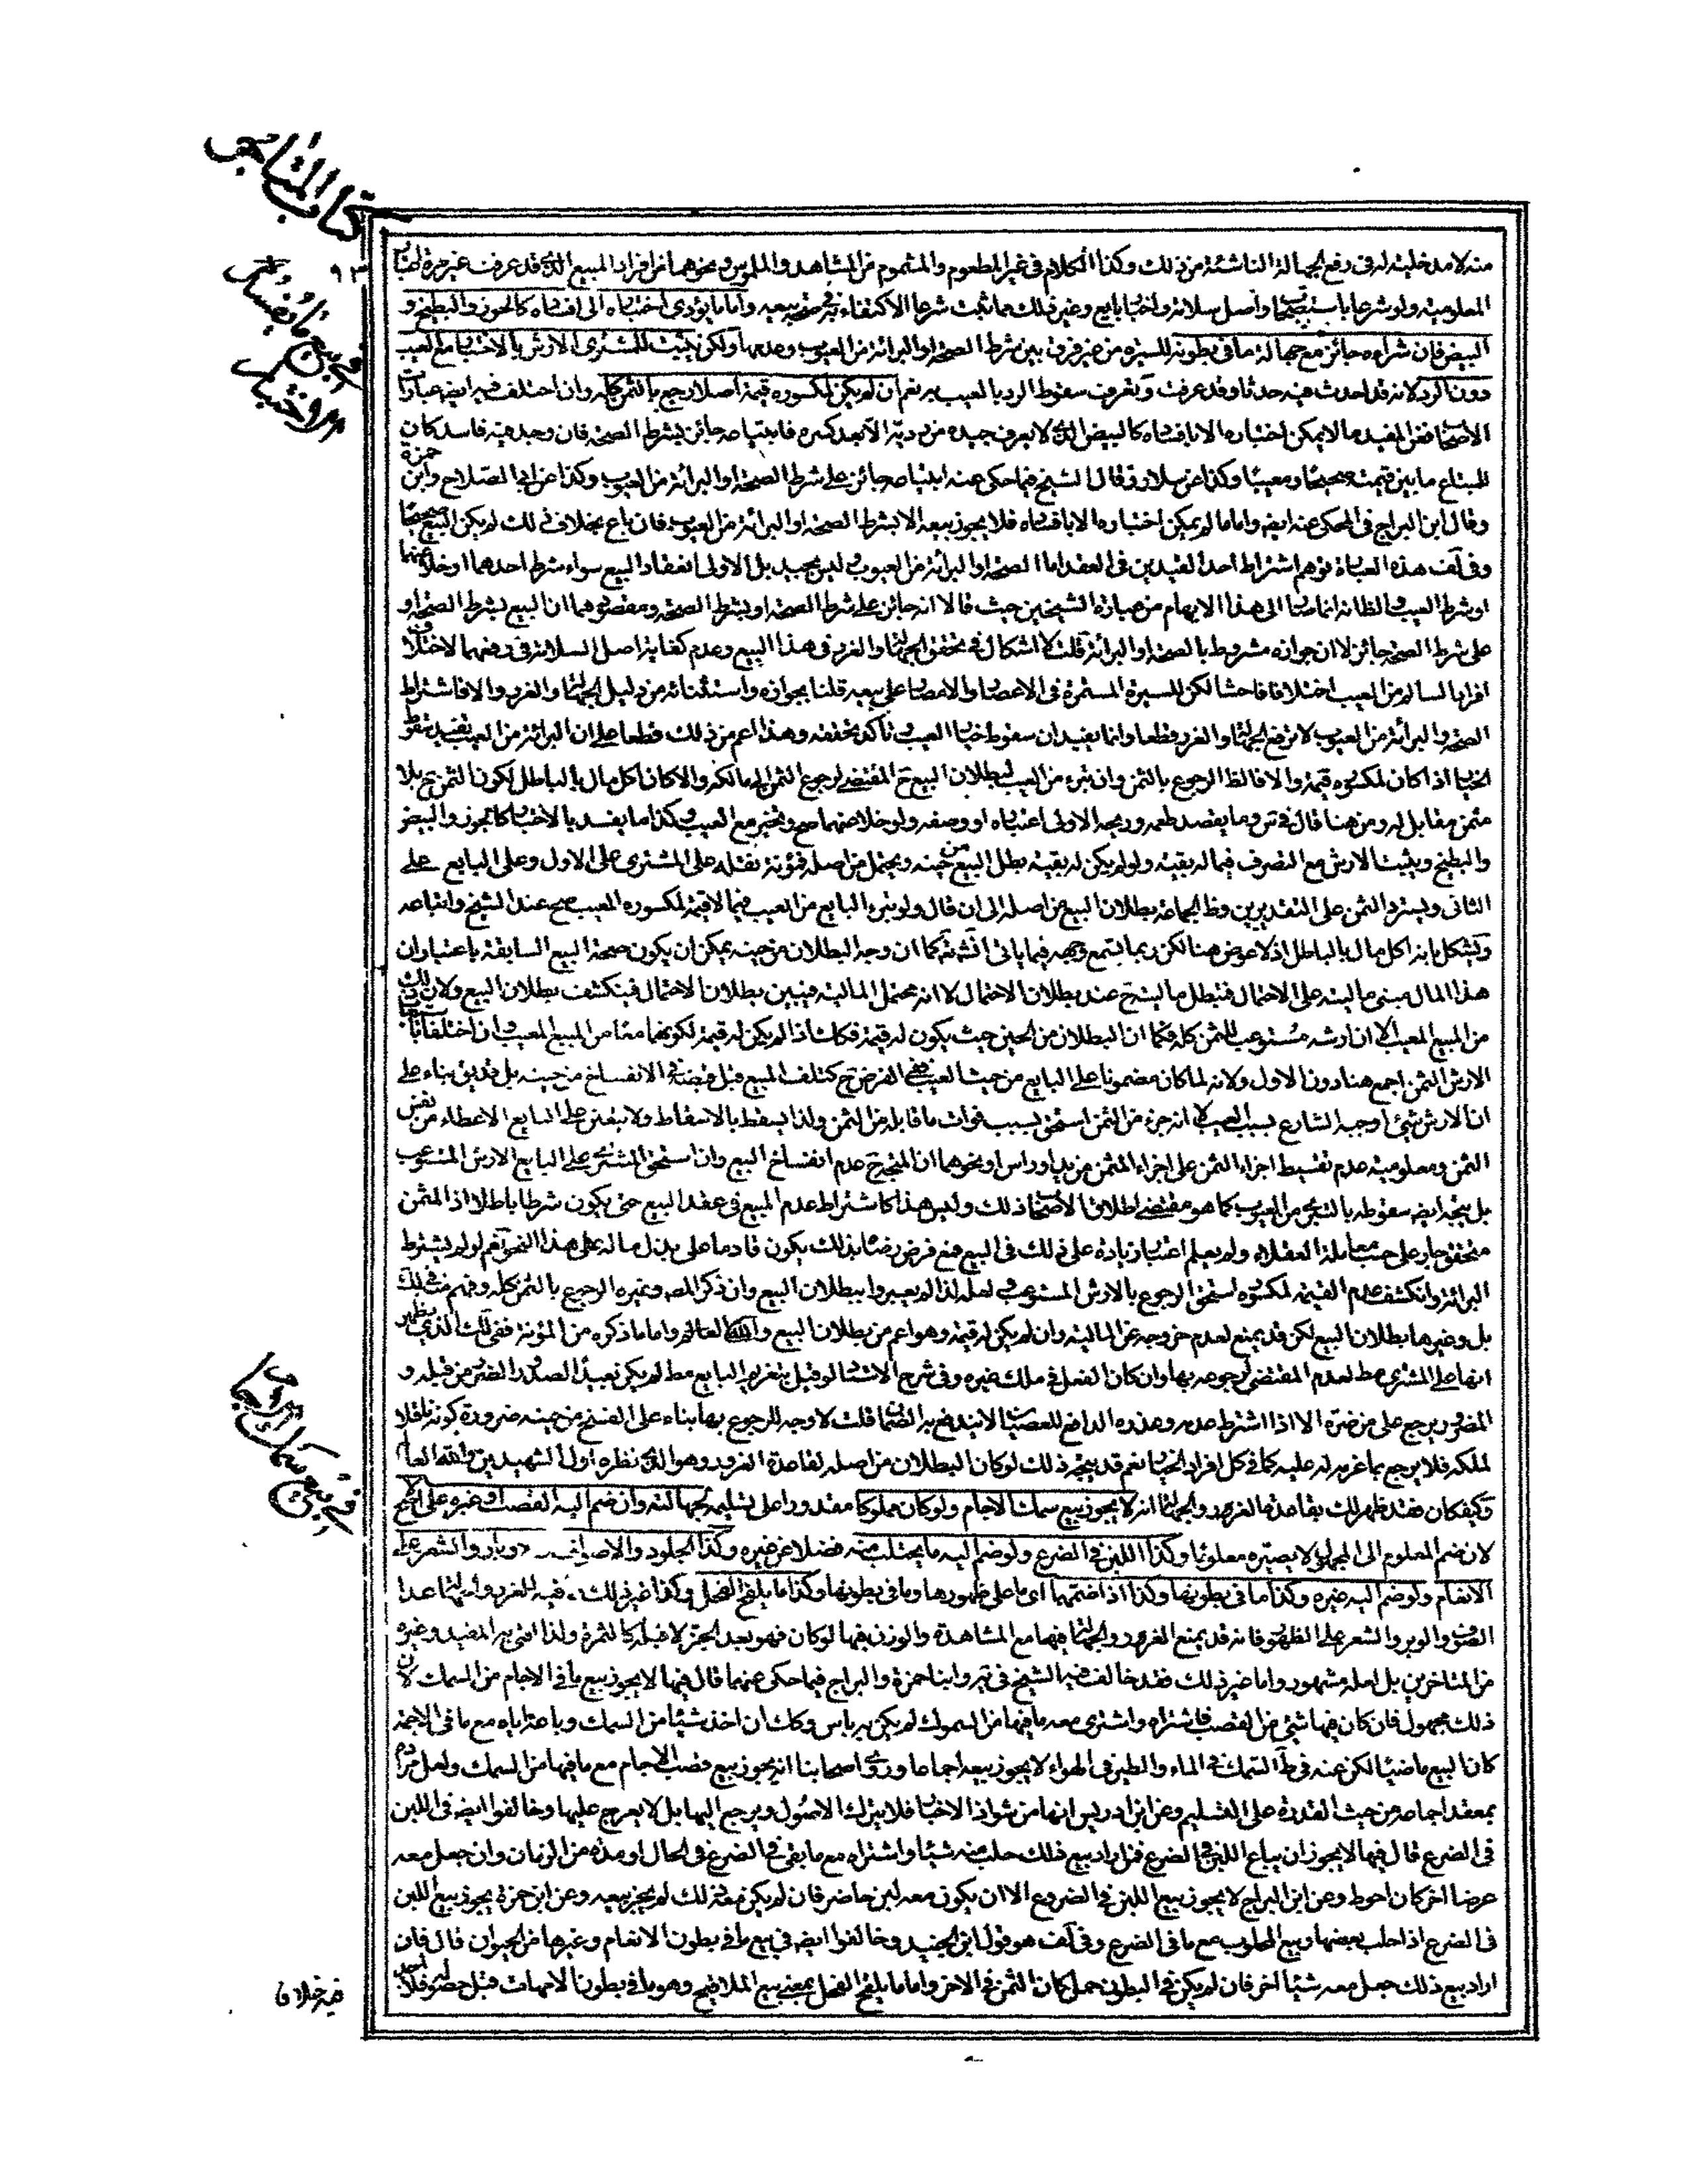 كتاب المتاجر
٩٣
في بيع ما يفسد بالاختبار
منه لا مدخلية له في رفع الجهالة الناشئة من ذلك وكذا الكلام في غير المطعوم والمشموم من المشاهد والملموس ونحوهما من افراد المبيع الذي قد عرفت غير مرة اعتبار
المعلومية ولو شرعا باستصحاب واصل سلامة واخبار بايع وغير ذلك مما ثبت شرعا الاكتفاء به في صحة بيعه واما ما يؤدي اختباره الى افساده كالجوز والبطيخ و
البيض فان شراءه جائز مع جهالة ما في بطونه للسيرة من غير فرق بين شرط الصحة او البرائة من العيوب وعدمها ولكن يثبت للمشتري الارش بالاختبار مع العيب
دون الرد لانه قد احدث فيه حدثا وقد عرفت وتعرف سقوط الرد بالعيب به نعم ان لم يكن لمكسوره قيمة اصلا رجع بالثمن كله وان اختلف فيه ايض عبارات
الاصحاب فعن المفيد ما لا يمكن اختباره الا بافساده كالبيض الذي لا يعرف جيده من رديه الا بعد كسره فابتياعه جائز بشرط الصحة فان وجد فيه فاسد كان
للمبتاع ما بين قيمته صحيحا ومعيبا وكذا عن سلار وقال الشيخ فيما حكى عنه ابتياعه جائز على شرط الصحة او البرائة من العيوب وكذا عن ابي الصلاح وابن حمزة
وقال ابن البراج في المحكى عنه ايض واما ما لم يمكن اختباره الا بافساده فلا يجوز بيعه الا بشرط الصحة او البرائة من العيوب فان باع بخلاف ذلك لم يكن البيع صحيحا
وفي لف هذه العبارة توهم اشتراط احد القيدين في العقد اما الصحة او البرائة من العيوب وليس بجيد بل الاولى انعقاد البيع سواء شرط احدهما او خلا عنهما
او شرط العيب والظ انه انما صار الى هذا الابهام من عبارة الشيخين حيث قالا انه جائز على شرط الصحة او بشرط الصحة ومقصودهما ان البيع بشرط الصحة او
على شرط الصحة جائز لا ان جوازه مشروط بالصحة او البرائة قلت لا اشكال في تحقق الجهالة والغرر في هذا البيع وعدم كفاية اصل السلامة في رفعهما لاختلاف
افراد السالم من العيب اختلافا فاحشا لكن للسيرة المستمرة في الاعصار والامصار على بيعه قلنا بجوازه واستثنائه من دليل الجهالة والغرر والا فاشتراط
الصحة والبرائة من العيوب لا ترفع الجهالة والغرر قطعا وانما يفيدان سقوط خيار العيب وتاكد تحققه وهذا اعم من ذلك قطعا على ان البرائة من العيب تفيد سقوط
الخيار اذا كان لمكسوره قيمة والا فالظ الرجوع بالثمن وان تبرء من العيب لبطلان البيع ح المقتضى لرجوع الثمن الى مالكه والا كان اكل مال بالباطل لكون الثمن ح بلا
مثمن مقابل له ومن هنا قال في س وما يقصد طعمه وريحه الاولى اعتباره او وصفه ولو خلا عنهما صح ويتخير مع العيب وكذا ما يفسد بالاختبار كالجوز والبيض
والبطيخ ويثبت الارش مع التصرف فيما له بقية ولو لم يكن له بقية بطل البيع من حينه ويحتمل من اصله فمؤنة نقله على المشتري على الاول وعلى البايع على
الثاني ويسترد الثمن على التقديرين وظ الجماعة بطلان البيع من اصله الى ان قال ولو تبرء البايع من العيب فيما لا قيمة لمكسوره المعيب صح عند الشيخ واتباعه
ويشكل بانه اكل مال بالباطل اذ لا عوض هنا لكن ربما يتمع وجهه فيما ياتي انش تع كما ان وجه البطلان من حينه يمكن ان يكون صحة البيع السابقة باعتبار ان
هذا المال مبنى ماليته على الاحتمال فتبطل ماليته ح عند بطلان الاحتمال لا انه محتمل المالية فيبين بطلان الاحتمال فينكشف بطلان البيع ولان ذلك
من المبيع المعيب الا ان ارشه مستوعب للثمن كله فكما ان البطلان من الحين حيث يكون له قيمة فكك اذا لم يكن له قيمة لكونهما معا من المبيع المعيب وان اختلفا باستيعاب
الارش الثمن اجمع هنا دون الاول ولانه لما كان مضمونا على البايع من حيث العيب ففي الفرض ح كتلف المبيع قبل قبضه في الانفساخ من حينه بل قد يق بناء على
ان الارش شيء اوجبه الشارع بسبب العيب لا انه جزء من الثمن استحق بسبب فوات ما قابله من الثمن ولذا يسقط بالاسقاط ولا يتعين على البايع الاعطاء من نفس
الثمن ومعلومية عدم تقسيط اجزاء الثمن على اجزاء المثمن من يد او راس او نحوهما ان المتجه ح عدم انفساخ البيع وان استحق المشتري على البايع الارش المستوعب
بل يتجه ايض سقوطه بالتبري من العيوب كما هو مقتضى اطلاق الاصحاب ذلك وليس هذا كاشتراط عدم المبيع في عقد البيع حتى يكون شرطا باطلا اذ المثمن
متحقق جار على حسب معاملة العقلاء ولم يعلم اعتبار زيادة على ذلك في البيع فمع فرض رضاه بذلك يكون قادما على بذل ماله على هذا النحو نعم لو لم يشترط
البرائة وانكشف عدم القيمة لمكسوره استحق الرجوع بالارش المستوعب ولعله لذا لم يعبروا ببطلان البيع وان ذكر المص وغيره الرجوع بالثمن كله وفهم منه في لك
بل وغيرها بطلان البيع لكن قد يمنع لعدم خروجه عن المالية وان لم يكن له قيمة وهو اعم من بطلان البيع والله العالم واما ما ذكره من المؤنة ففي لك الذي يظهر
انها على المشتري مط لعدم المقتضى لرجوعه بها وان كان الفعل في ملك غيره وفي شرح الاستاد لو قيل بتغريم البايع مط لم يكن بعيدا لصدور الضرر من قبله و
المغرور يرجع على من ضره الا اذا اشترط عدمه وعذره الدافع للعصيان لا يندفع به الضمان قلت لا وجه للرجوع بها بناء على الفسخ من حينه ضرورة كونه ناقلا
لملكه فلا يرجع بما غرم له عليه كما في كل افراد الخيار نعم قد يتجه ذلك لو كان البطلان من اصله لقاعدة الغرور وهو الذي نظره اول الشهيدين والله العالم
وكيف كان فقد ظهر لك بقاعدة الغرر والجهالة انه لا يجوز بيع سمك الاجام ولو كان مملوكا مقدورا على تسليمه لجهالته وان ضم اليه القصب وغيره على الاصح
لان ضم المعلوم الى المجهول لا يصيره معلوما وكذا اللبن في الضرع ولو ضم اليه ما يحتلب منه فضلا عن غيره وكذا الجلود والاصواف والاوبار والشعر على
الانعام ولو ضم اليه غيره وكذا ما في بطونها وكذا اذا ضمهما اي ما على ظهورها وما في بطونها وكذا ما يلقح الفحل وكذا غير ذلك مما فيه الغرر والجهالة ما عدا
الصوف والوبر والشعر على الظهور فانه قد يمنع الغرر والجهالة فيها مع المشاهدة والوزن فيها لو كان فهو بعد الجز لا قبله كالثمرة ولذا افتى به المفيد وغيره
من المتاخرين بل لعله مشهور واما غير ذلك فقد خالف فيه الشيخ في يه وابنا حمزة والبراج فيما حكى عنهما قال فيها لا يجوز بيع ما في الاجام من السمك لان
ذلك مجهول فان كان فيها شيء من القصب فاشتراه واشترى معه ما فيها من السموك لم يكن به باس وكك ان اخذ شيئا من السمك وباعه اياه مع ما في الاجمة
كان البيع ماضيا لكن عنه في ط السمك في الماء والطير في الهواء لا يجوز بيعه اجماعا وروى اصحابنا انه يجوز بيع قصب الاجام مع ما فيها من السمك ولعل مراده
بمعقد اجماعه من حيث القدرة على التسليم وعن ابن ادريس انها من شواذ الاخبار فلا يترك لها الاصول ويرجع اليها بل لا يعرج عليها وخالفوا ايض في اللبن
في الضرع قال فيها لا يجوز ان يباع اللبن في الضرع فمن اراد بيع ذلك حلب منه شيئا واشتراه مع ما بقى في الضرع في الحال او مدة من الزمان وان جعل معه
عرضا اخر كان احوط وعن ابن البراج لا يجوز بيع اللبن في الضروع الا ان يكون معه لبن حاضر فان لم يكن معه ذلك لم يجز بيعه وعن ابن حمزة يجوز بيع اللبن
في الضرع اذا حلب بعضها وبيع المحلوب مع ما في الضرع وفي لف هو قول ابن الجنيد وخالفوا ايض في بيع ما في بطون الانعام وغيرها من الحيوان قال فان
اراد بيع ذلك جعل معه شيئا اخر فان لم يكن في البطون حمل كان الثمن في الاخر واما ما يلقح الفحل بمعنى بيع الملاقيح وهو ما في بطون الامهات قبل حضوره فلا اجد
في بيع سمك الاجام
فيه خلافا